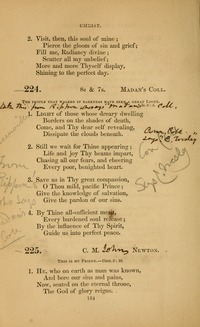 CHRIST.
2. Visit, then, this soul of mine;
Pierce the gloom of sin and grief;
Fill me, Radiancy divine;
Scatter all my unbelief;
More and more Thyself display,
Shining to the perfect day.
224. 8s & 7s. MADAN'S COLL.
THE PEOPLE THAT WALKED IN DARKNESS HAVE SEEN A GREAT LIGHT.
take this from Rippon
Coll.
1. LIGHT of those whose dreary dwelling
Borders on the shades of death,
Come, and Thy dear self revealing,
Dissipate the clouds beneath.
2. Still we wait for Thine appearing;
Life and joy Thy beams impart,
Chasing all our fears, and cheering
Every poor, benighted heart.
3. Save us in Thy great compassion,
O Thou mild, pacific Prince;
Give the knowledge of salvation,
Give the pardon of our sins.
4. By Thine all-sufficient merit,
Every burdened soul release;
By the influence of Thy Spirit,
Guide us into perfect peace.
From
Rippon
who says
Coll
says C. Wesley
225. C. M. John NEWTON.
1. HE, who on earth as man was known,
And bore our sins and pains,
Now, seated on the eternal throne,
The God of glory reigns.